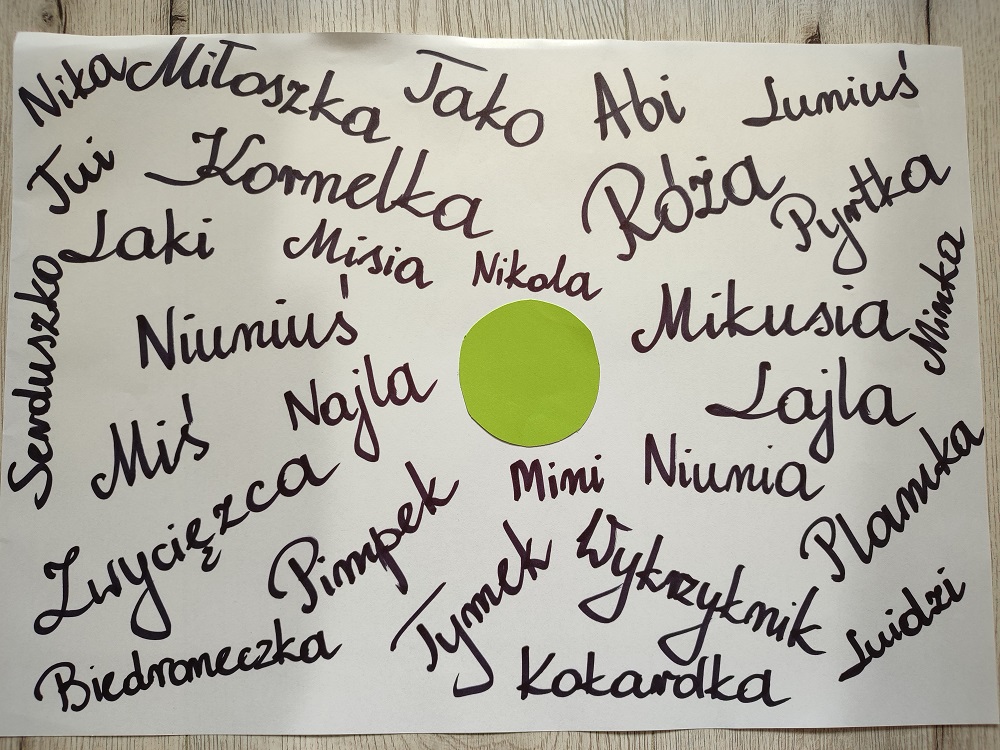 Nika
Miłoszka
Jako
Abi
Luniuś
Tui
Kornelka
Róża
Pyrtka
Laki
Misia
Nikola
Minka
Serduszko
Niuniuś
Mikusia
Najla
Lajla
Miś
Mini
Niunia
Plamka
Zwycięzca
Pimpek
Tymek
Wykrzyknik
Luidzi
Biedroneczka
Kokardka